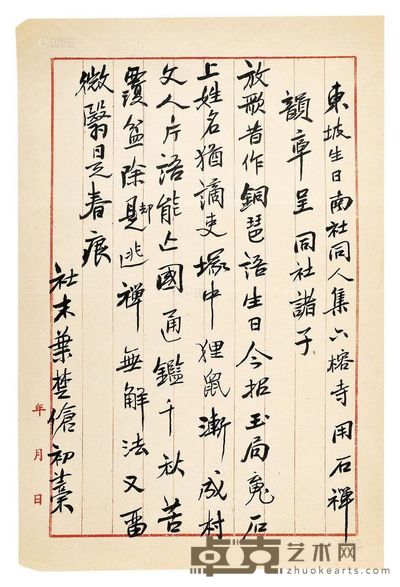 東坡生日南社同人集六榕寺用石禪
韻率呈同社諸子
放歌昔作銅琶語生日今招玉局魂石
上姓名猶謫吏塚中狸鼠漸成村
文人片語能亡國通鑑千秋苦
覆盆除是却逃禪無解法又留
微翳是春痕
社末葉楚傖初藁
年月日
卓克艺术网
zhuokearts.com